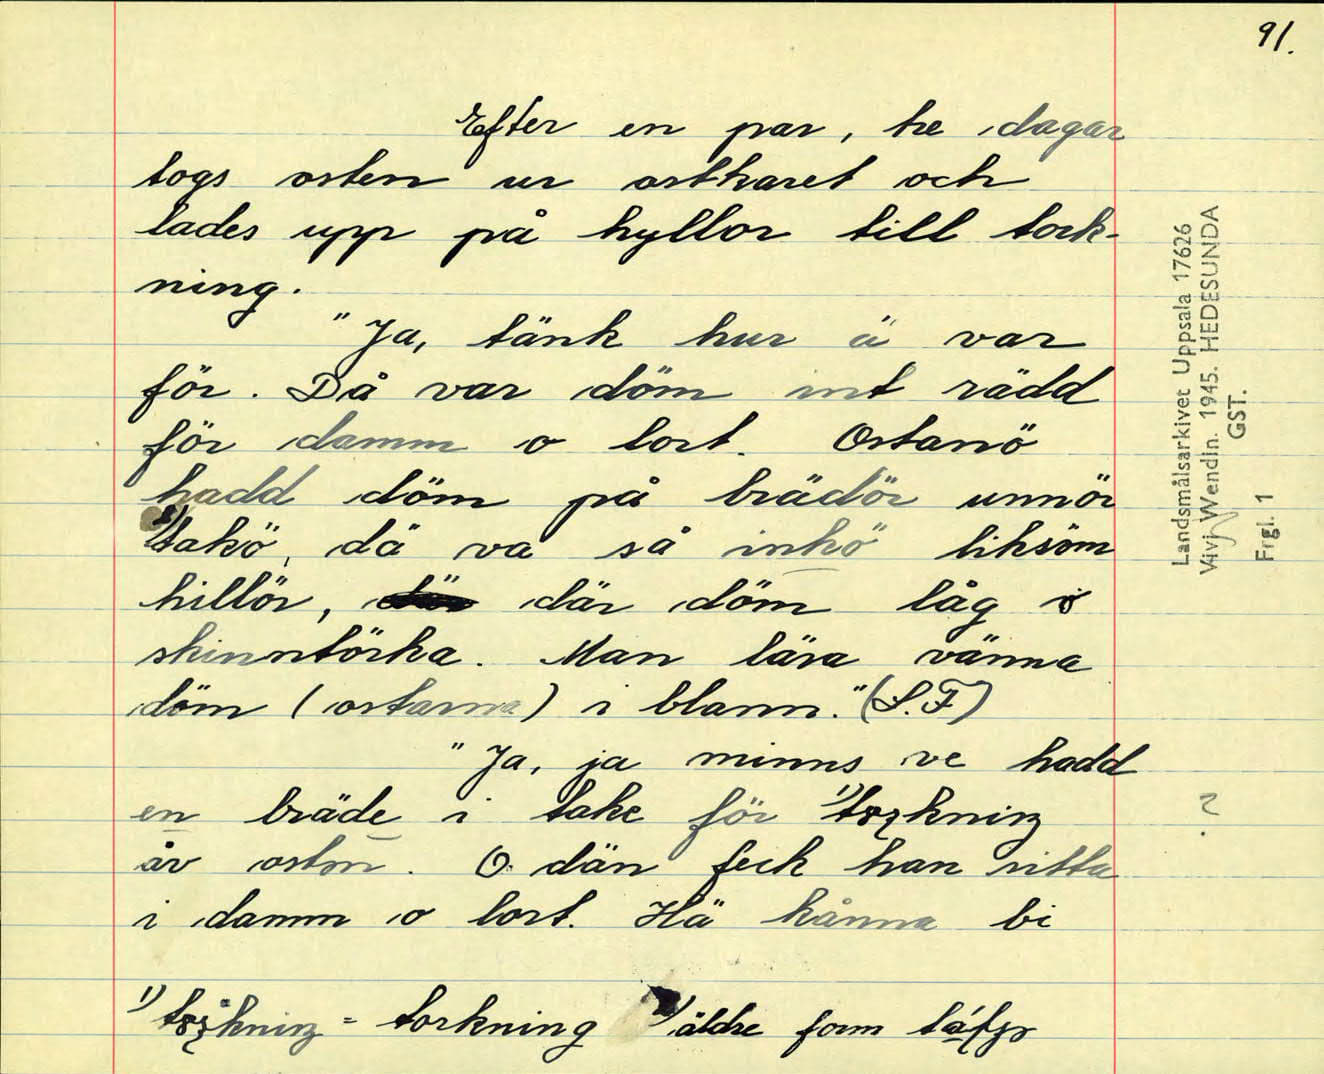 91.
Efter en par, tre dagar
togs osten ur ostkaret och
lades upp på hyllor till tork-
ning.
"Ja, tänk hur ä var
för. Då var döm int rädd
för damm o lort. Ostanö
hadd döm på brädör unnör
2) takö, dä va så inkö liksöm
hillör, där döm låg o
skinntörka. Man lära vänna
döm (ostarna) i blann." (S.F)
"Ja, ja minns ve hadd
en bräde i take för 1)
åv ostn. O dän feck han sitta
i damm o lort. Hä kånna bi
1) = torkning 2) äldre form
Landsmålsarkivet Uppsala 17626
Vivi Wendin. 1945. HEDESUNDA
GST.
Frgl. 1
?